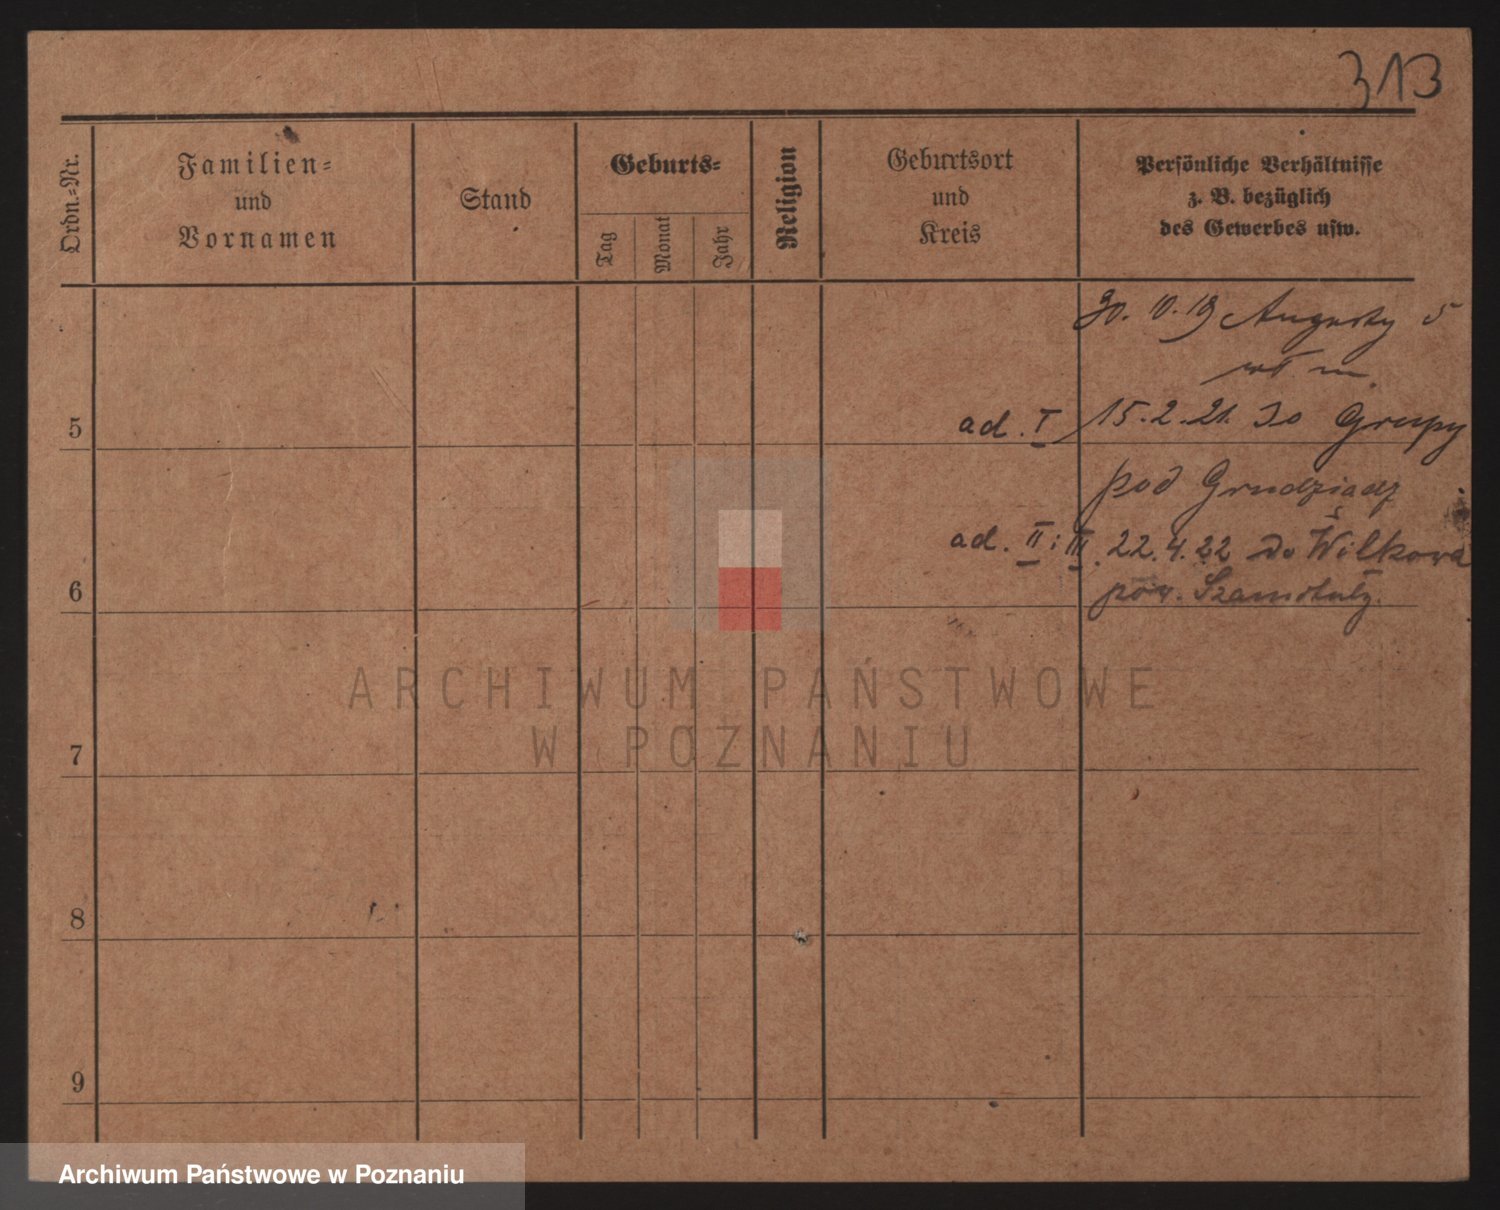 313
Ordn.-Nr.
Familien-
und
Vornamen
Stand
Geburts-
Tag
Monat
Jahr
Religion
Geburtsort
und
Kreis
Persönliche Verhältnisse
z. B. bezüglich
des Gewerbes usw.
30. 10. 19 Augusty 5
wł. m.
5
ad. I 15.2.21. do Grupy
pod Grudziądz
ad. II i III. 22.4.22 do Wilkowa
6
pow. Szamotuły.
ARCHIWUM PAŃSTWOWE
W POZNANIU
7
8
9
Archiwum Państwowe w Poznaniu